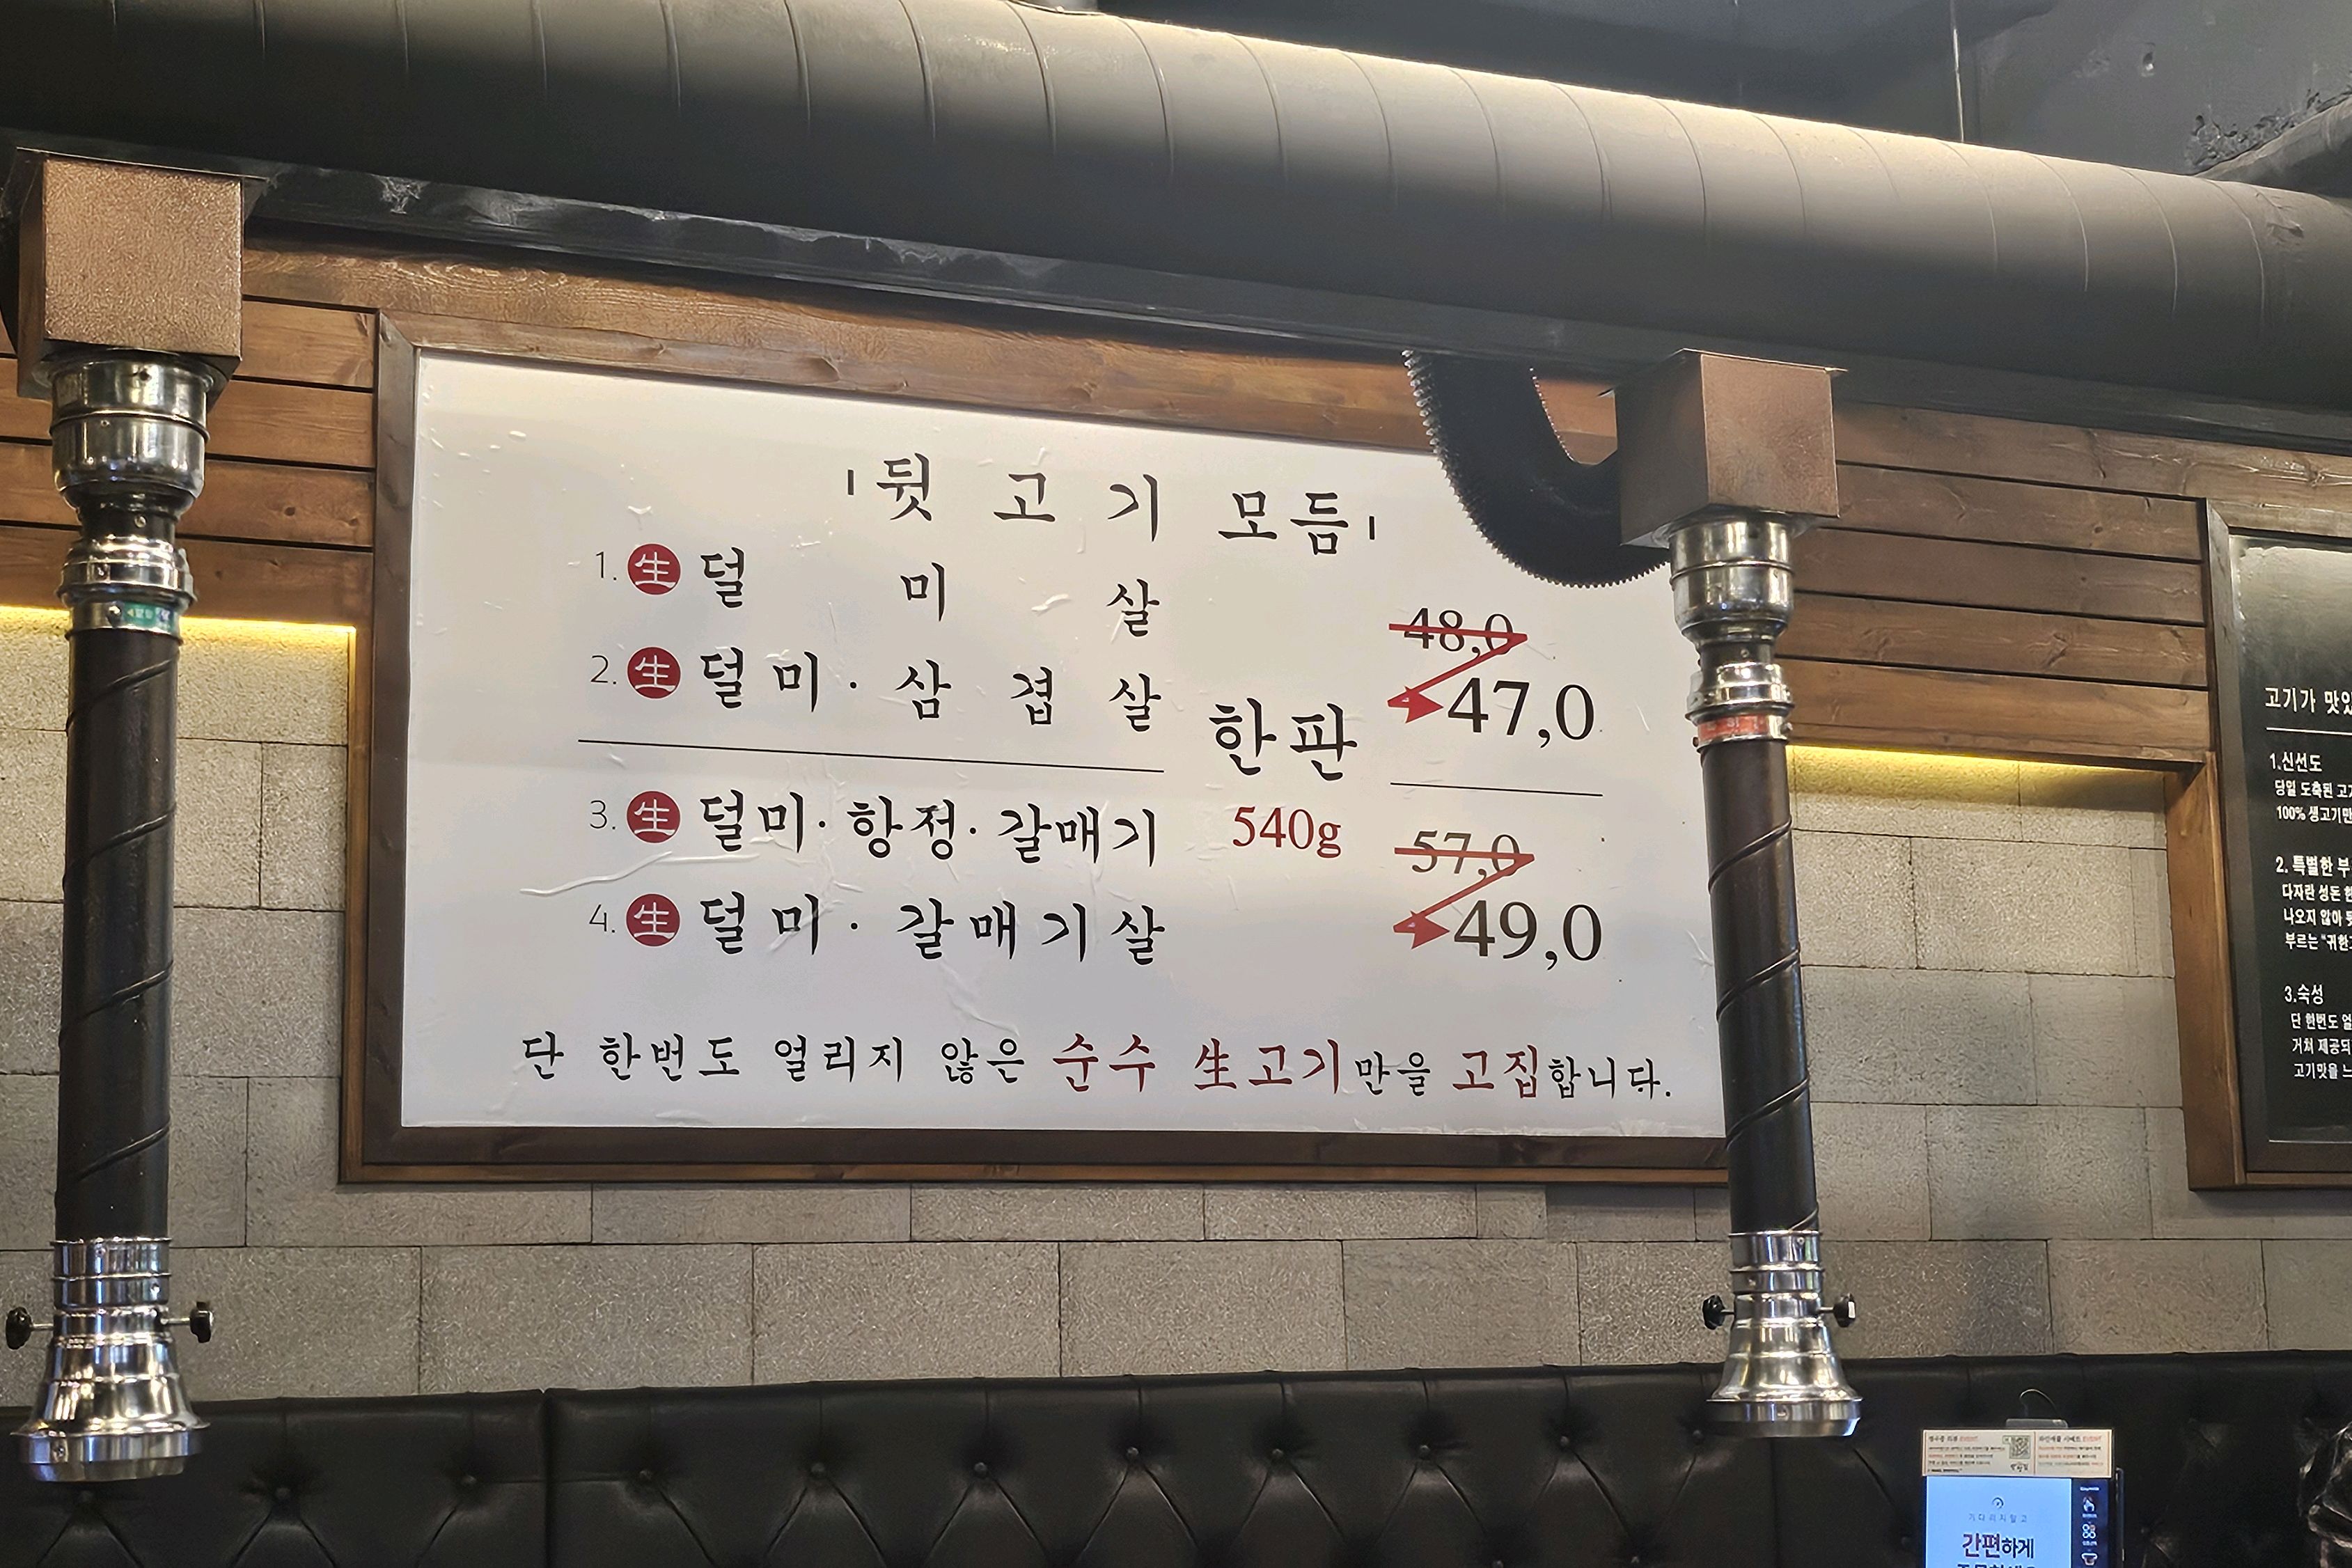 뒷고기 모듬
1. 生 덜미살
2. 生 덜미·삼겹살
3. 生 덜미·항정·갈매기
4. 生 덜미·갈매기살
한판
540g
48,0
47,0
57,0
49,0
단 한번도 얼리지 않은 순수 生고기만을 고집합니다.
고기가 맛있
1.신선도
당일 도축된 고기
100% 생고기만
2. 특별한 부
다자란 성돈 한
나오지 않아 뒷
부르는 "귀한
3.숙성
단 한번도 얼
거쳐 제공되
고기맛을 느
기다리지말고
간편하게